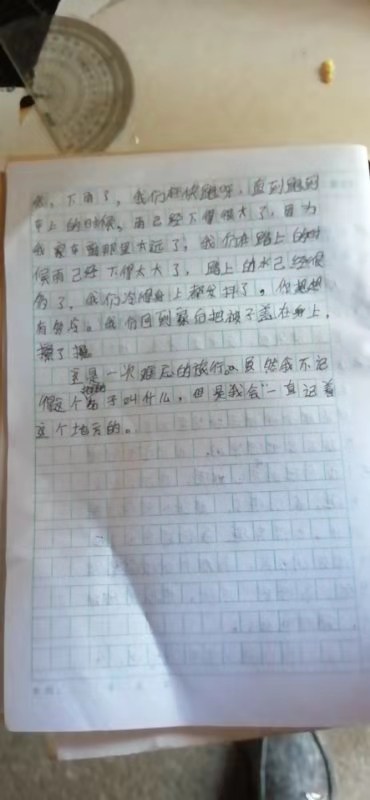 我，下雨了，我们赶快跑呀，直到跑到
车上的时候，雨已经下得很大了，因为
我家车离那里太远了，我们在路上的时
候雨已经下得太大了，路上的水已经很
多了，我们冷得身上都发抖了。
有多冷。我们回到家们把被子盖在身上，
摸了摸
这是一次难忘的旅行，虽然我不记
得这个 子叫什么，但是我会一直记着
这个地方的。